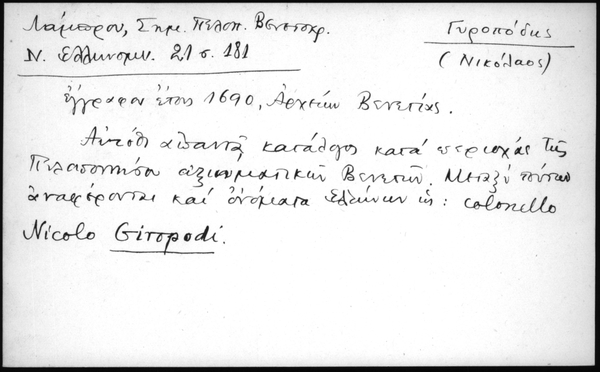 Λάμπρου, Σημ. Πελοπ. Βενετοκρ.
Ν. Ελληνομν. 21 σ. 181
Γυροπόδης
(Νικόλαος)
έγγραφον έτους 1690, Αρχείων Βενετίας.
Αυτόθι απαντά κατάλογος κατά περιοχάς της
Πελοποννήσου αξιωματικών Βενετών. Μεταξύ τούτων
αναφέρονται και ονόματα Ελλήνων ως: colonello
Nicolo Giropodi.